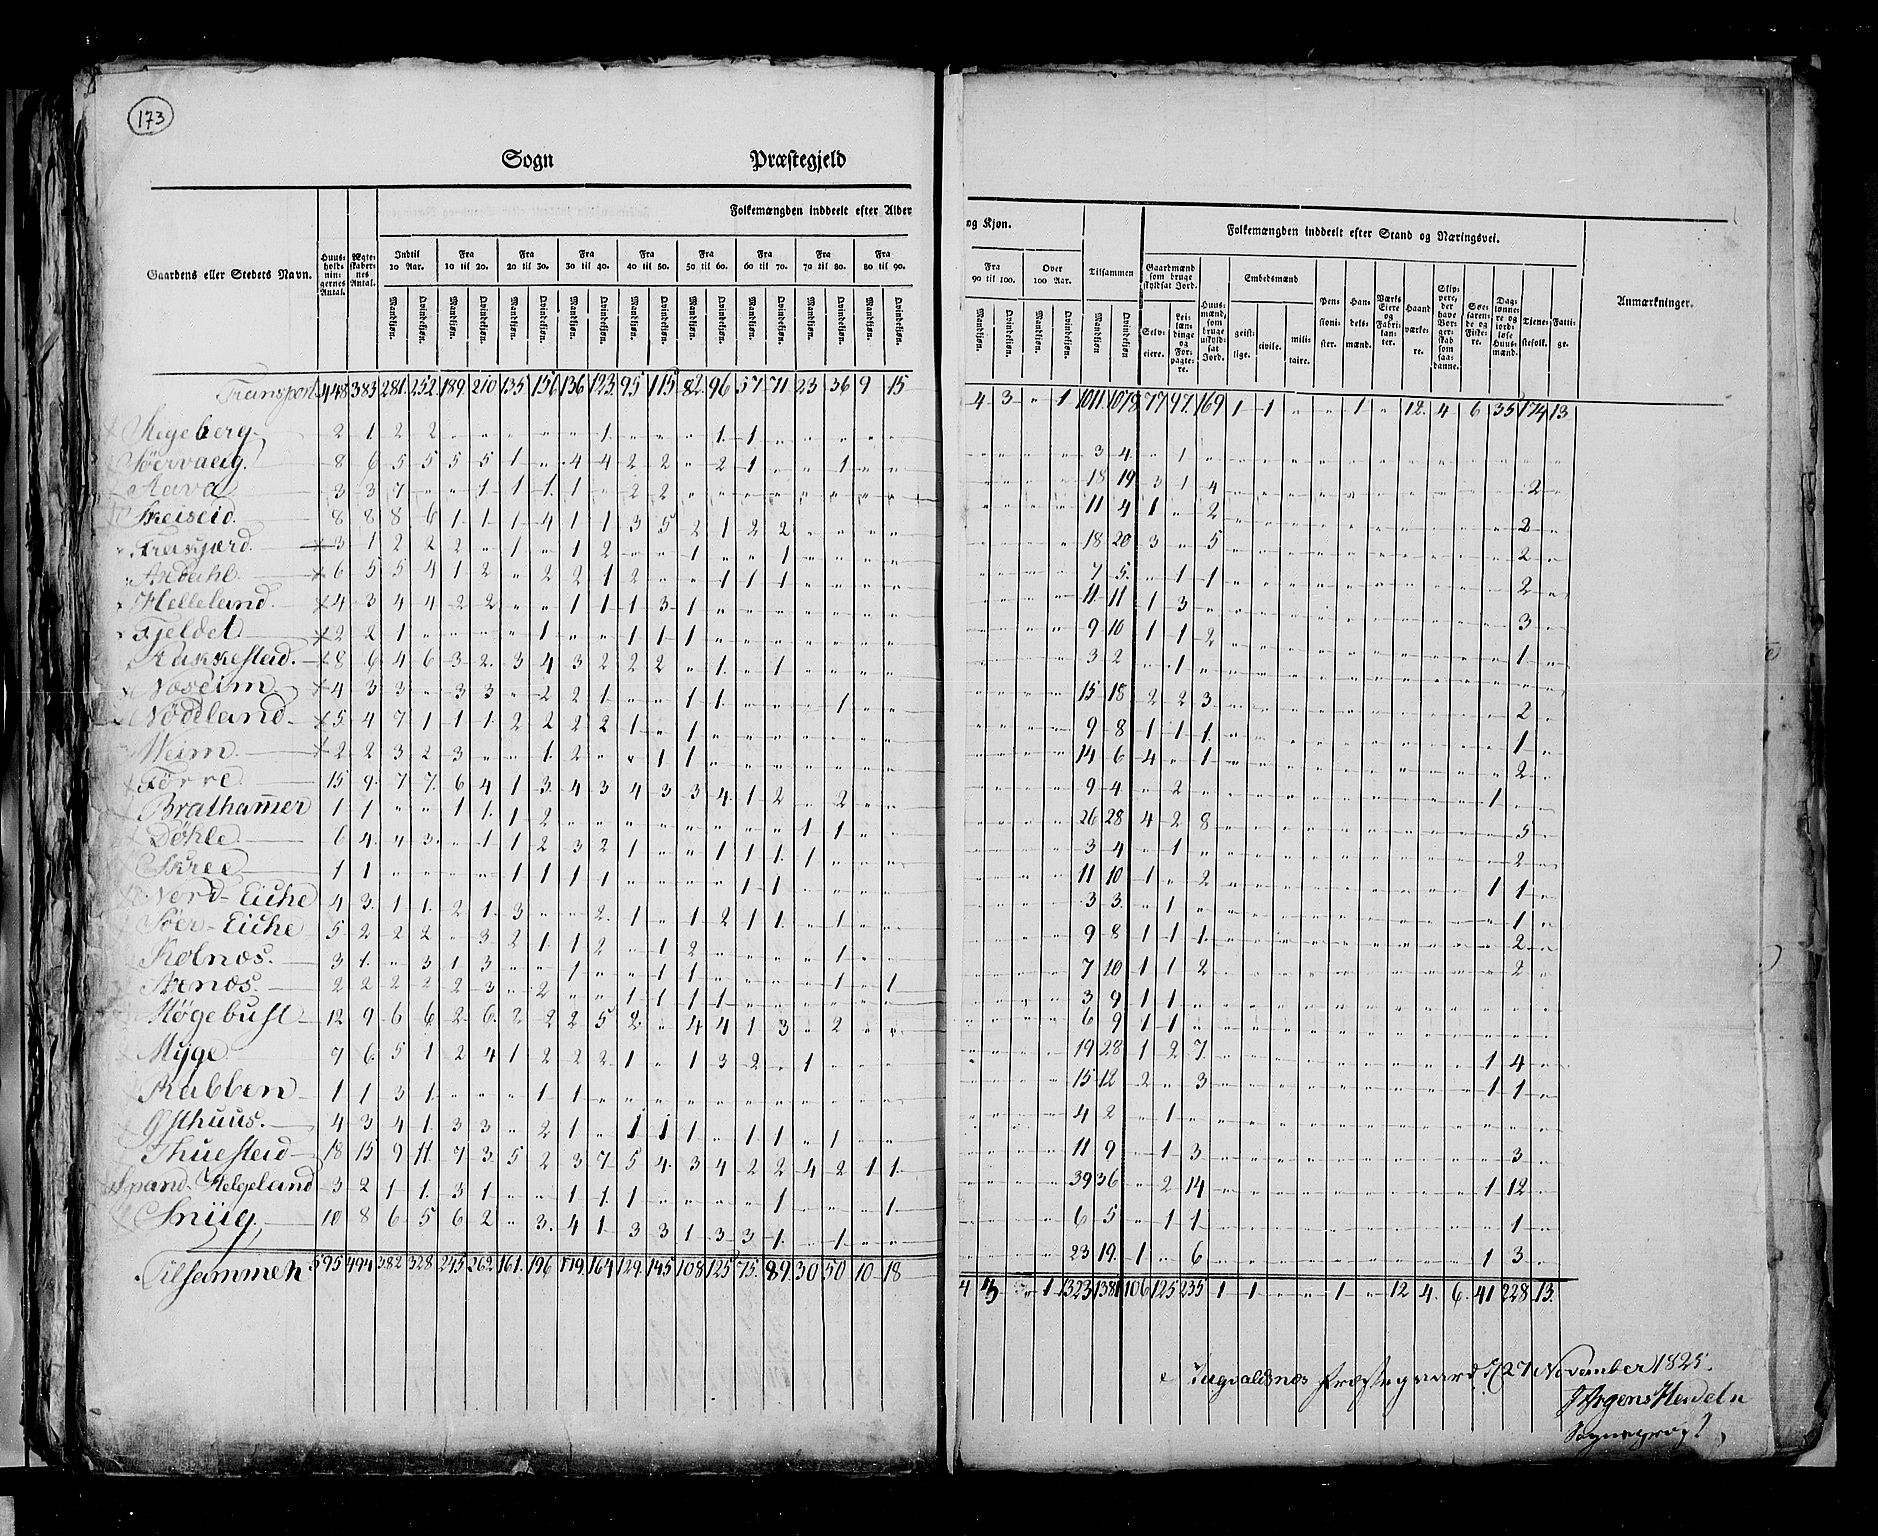 173
Sogn Præstegjeld
Folkemængden inddeelt efter Alder og Kjøn. Folkemængden inddeelt efter Stand og Næringsvei.
Gaardens eller Stedets Navn. Huusholdningernes Antal. Ægteskabernes Antal. Indtil 10 Aar. Fra 10 til 20. Fra 20 til 30. Fra 30 til 40. Fra 40 til 50. Fra 50 til 60. Fra 60 til 70. Fra 70 til 80. Fra 80 til 90. Fra 90 til 100. Over 100 Aar. Tilsammen Gaardmænd som bruge skyldsat Jord. Huusmænd, som bruge uskyldsat Jord. Embedsmænd Pensionister. Handelsmænd. Værks Eiere og Fabrikanter. Haandværkere. Skippere, der have Borgerskab som saadanne. Søefarende og Fiskere. Daglønnere og jordløse Huusmænd. Tjenestefolk. Fattige. Anmærkninger.
Mandkjøn. Qvindekjøn. Selveiere. Leilændinge og Forpagtere. geistlige. civile. militaire.
Transport 448 383 281 252 189 210 135 156 136 123 95 115 82 96 57 71 23 36 9 15 4 3 " 1 1011 1078 77 97 169 1 1 " " 1 " 12 4 6 35 174 13
Stegeberg 2 1 2 2 3 4 " 1
Søervaag 8 6 5 5 5 5 1 " 4 4 2 2 " 2 1 " " 1 18 19 3 1 4 2
3 3 7 " " 1 1 1 1 " 2 2 11 4 1 " 2 2
Skeiseid 8 8 8 6 1 1 1 4 1 1 3 5 2 1 2 2 18 20 3 " 5 2
3 1 2 2 2 " 1 " 1 2 " " 1 " " 1 7 5 " 1 1 2
6 5 5 4 1 2 " 2 2 1 2 " " 1 1 1 11 11 1 3 3
Helleland 4 3 4 4 2 2 " " 1 1 1 3 1 9 10 1 1 2 1
Fjeldet 2 2 1 " " " " 1 " " 1 1 1 3 2 " 1
Aukkestad 8 6 4 6 3 2 3 4 3 2 2 2 " 1 " 1 15 18 2 2 3 2
Noreim 4 3 3 " 3 3 " 2 2 1 " " 1 1 " " " 1 9 8 1 1 1 1
Nødland 5 4 7 1 1 1 2 2 2 2 1 " 1 14 6 4 " 1 2
2 2 3 2 3 " " 1 2 " " 1 1 9 4 " 2 1
Førre 15 9 7 7 6 4 1 3 4 3 4 3 3 4 1 2 " 2 26 28 4 2 8 5
Brathammer 1 1 " " 1 1 1 2 1 1 3 4 " 1 2
Døhle 6 4 " 3 " 1 1 2 3 2 1 " " 1 1 1 1 11 10 1 " 2 1 1
Skree 1 1 " " " " 1 1 1 1 " " " " 1 1 3 3 " 1 1
Nord-Eiche 4 3 1 1 2 1 3 " " 2 1 " 1 2 1 1 " 1 9 8 1 1 1 2
Søer-Eiche 5 2 2 2 " 3 2 1 1 2 " 1 2 " " " " 1 7 10 1 1 2 2
Kolnæs 3 1 " 3 1 3 " " 1 " " 1 1 " " " " 1 " 1 3 9 1 1
2 2 2 2 2 3 " 2 " " 1 1 1 1 6 9 1 1
Høgebust 12 9 6 6 2 6 2 2 2 5 2 " 4 4 1 3 " 2 19 28 1 2 7 1 4
Myge 7 6 5 1 2 4 1 2 2 2 1 " 1 3 2 " 1 15 12 2 " 3 1 1
Rabben 1 1 3 1 " " " 1 1 4 2 " 1
Østhuus 4 3 4 1 3 3 " 2 1 " 1 1 " " 1 1 " 1 11 9 " 1 3 3
Thuestad 18 15 9 11 7 3 5 2 3 7 5 4 3 4 2 2 4 2 1 1 39 36 " 2 14 1 12
Spand-Helgeland 3 2 1 1 3 1 " " 1 1 1 " " " " 1 " " " 1 6 5 " 1 1 1
Sniig 10 8 6 5 6 2 " 3 4 1 3 3 1 3 3 1 " 1 23 19 1 " 6 1 3
Tilsammen 595 494 382 328 245 262 161 196 179 164 129 145 108 125 75 89 30 50 10 18 4 3 " 1 1323 1381 106 125 235 1 1 " " 1 " 12 4 6 41 228 13
Augvaldsnæs Præstegaard d 27 November 1825.